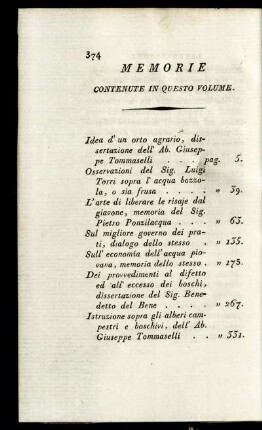 374
MEMORIE
CONTENUTE IN QUESTO VOLUME.
Idea d'un orto agrario, dis-
sertazione dell' Ab. Giusep-
pe Tommaselli . . . . pag. 5.
Osservazioni del Sig. Luigi
Torri sopra l'acqua bozzo-
la, o sia frusa . . . . " 39.
L'arte di liberare le risaje dal
giavone, memoria del Sig.
Pietro Ponzilacqua . . . " 63.
Sul migliore governo dei pra-
ti, dialogo dello stesso . " 135.
Sull' economia dell'acqua pio-
vana, memoria dello stesso . " 175.
Dei provvedimenti al difetto
ed all' eccesso dei boschi,
dissertazione del Sig. Bene-
detto del Bene . . . . " 267.
Istruzione sopra gli alberi cam-
pestri e boschivi, dell' Ab.
Giuseppe Tommaselli . . " 331.